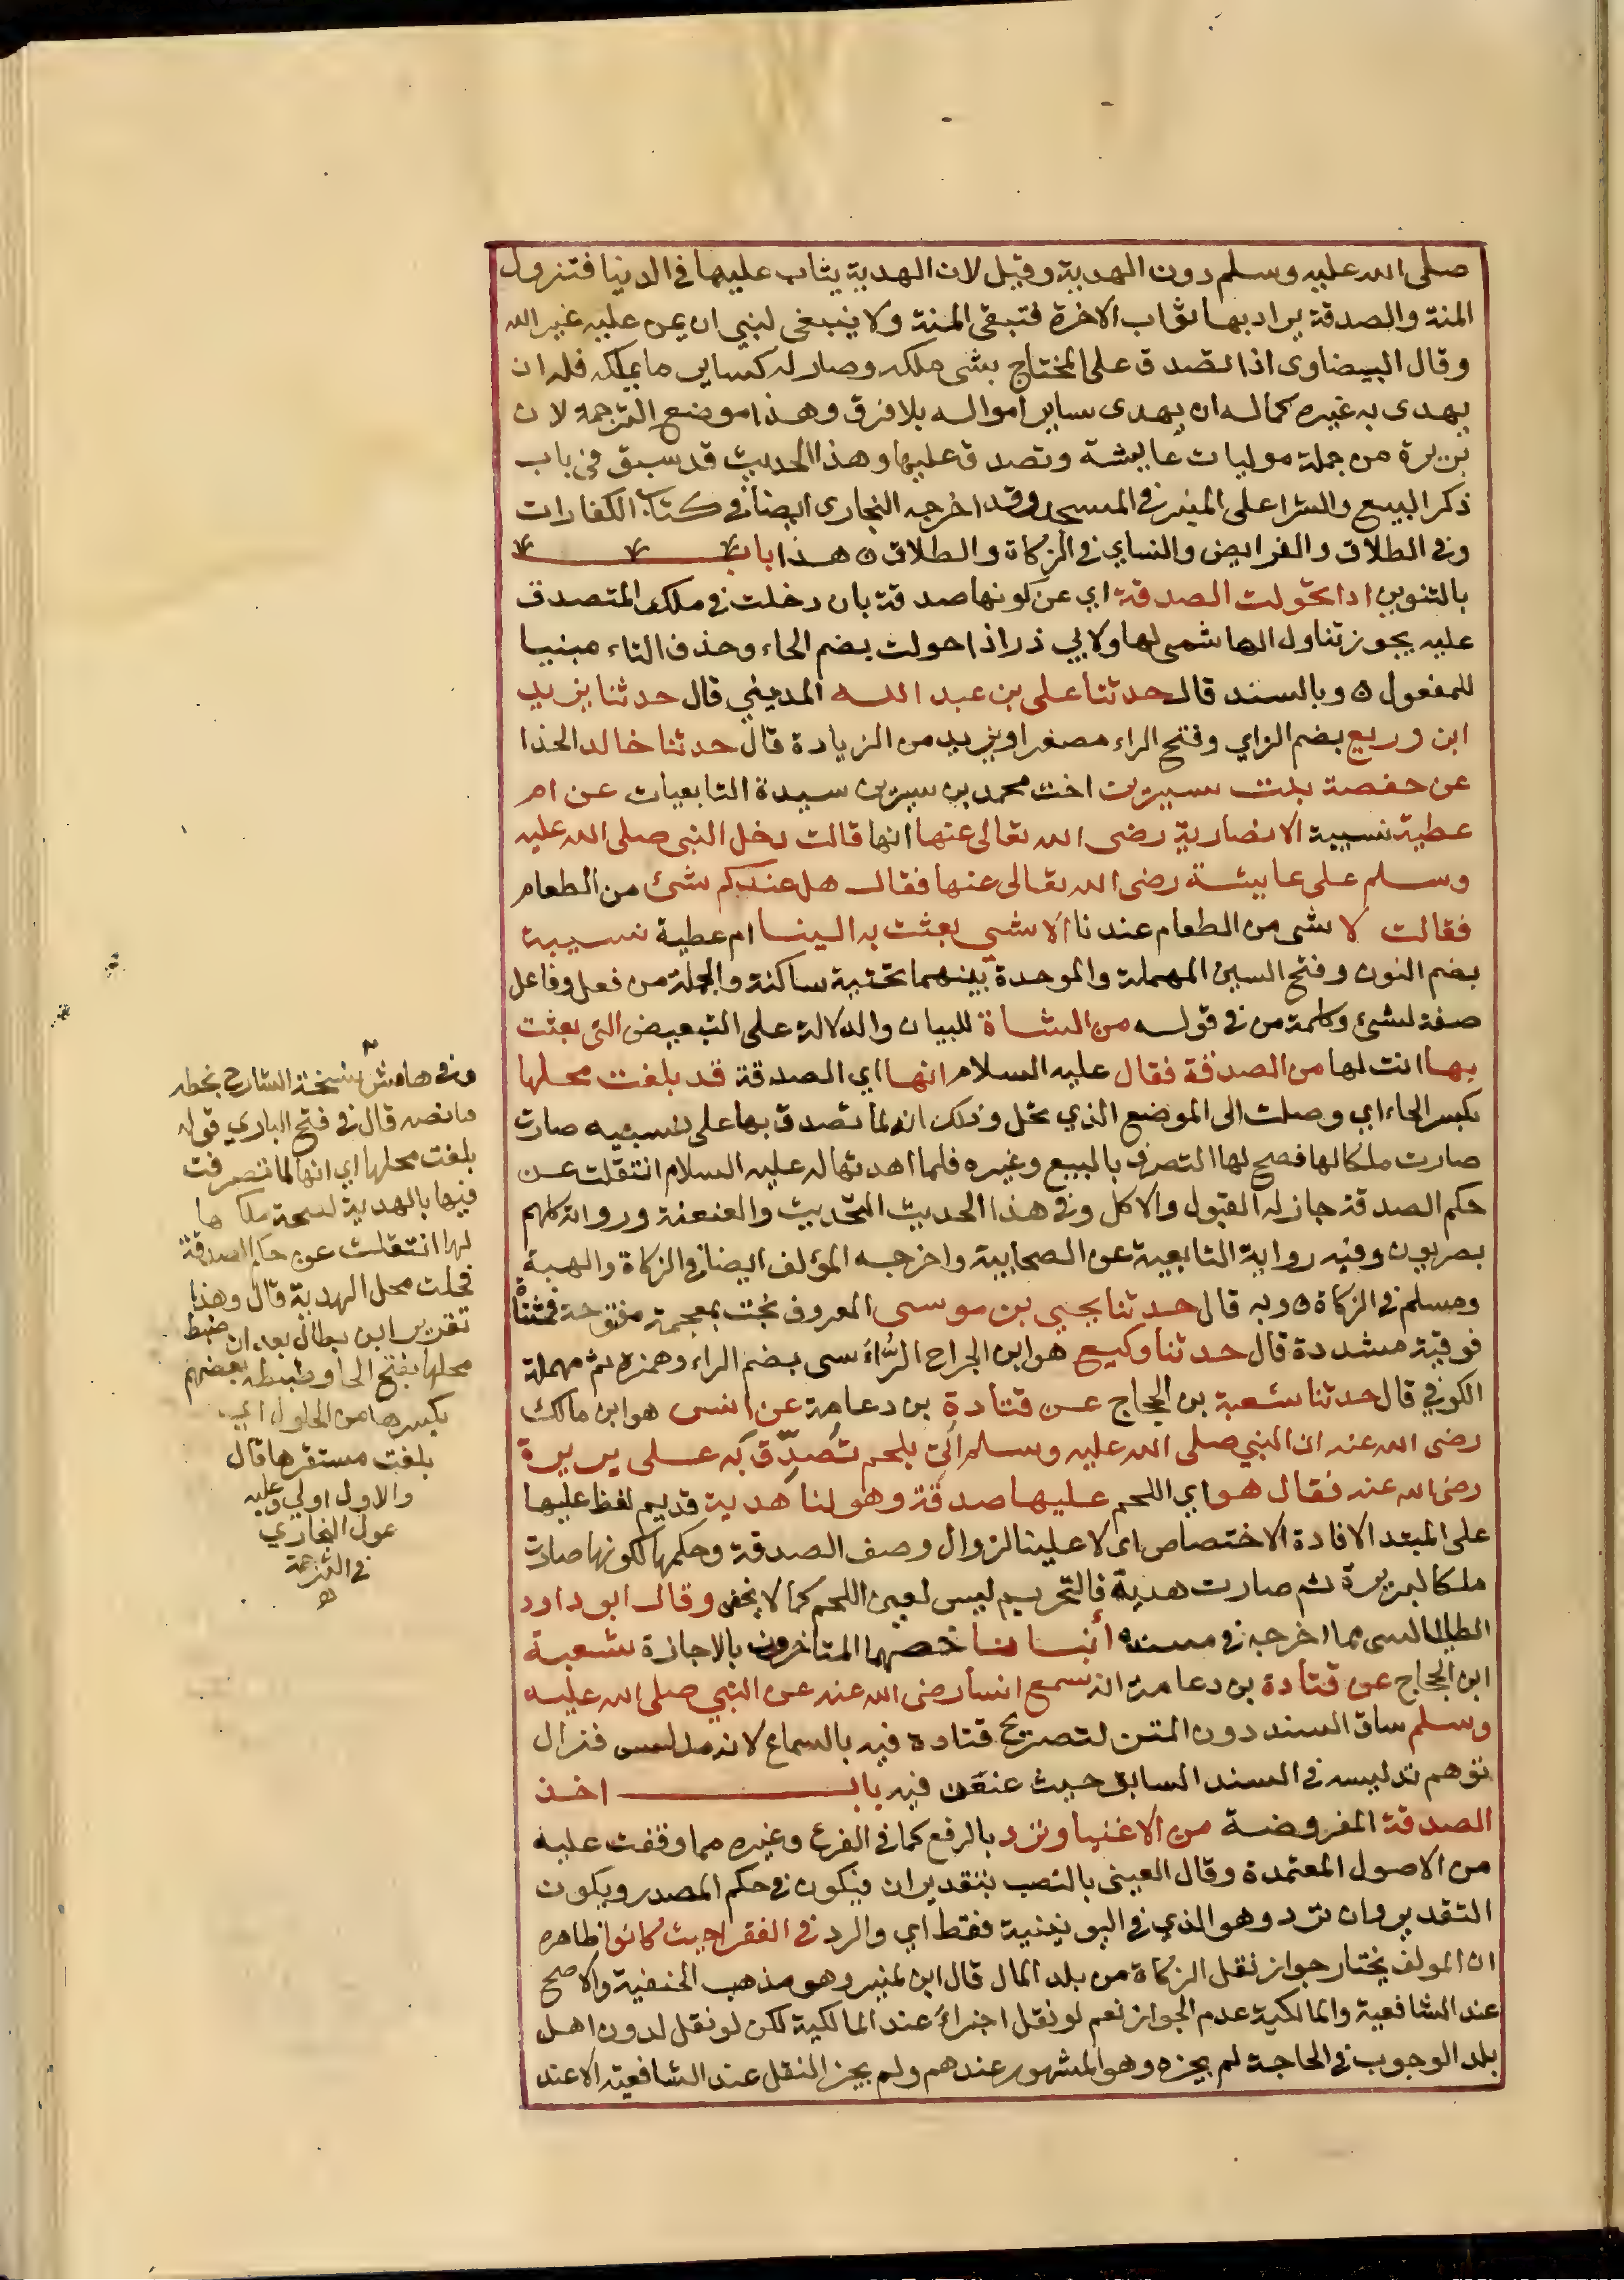 صلى الله عليه وسلم دون الهدية وقيل لان الهدية يثاب عليها في الدنيا فتزول
المنة والصدقة يراد بها ثواب الاخرة فتبقى المنة ولا ينبغي لنبي ان يمن عليه غير الله
وقال البيضاوى اذا تصدق على المحتاج بشى ملكه وصار له كساير ما يملكه فله ان
يهدى به غيره كماله ان يهدى ساير امواله بلا فرق وهذا موضع الترجمة لان
بريرة من جملة موليات عايشة وتصدق عليها وهذا الحديث قد سبق في باب
ذكر البيع والشرا على المنبر في المسجد وقد اخرجه البخارى ايضا في كتاب الكفارات
وفي الطلاق والفرايض والنساي في الزكاة والطلاق ه هذا باب
بالتنوين اذا تحولت الصدقة اي عن كونها صدقة بان دخلت في ملك المتصدق
عليه يجوز تناول الهاشمى لها ولابي ذر اذا حولت بضم الحاء وحذف التاء مبنيا
للمفعول ه وبالسند قال حدثنا على بن عبد الله المديني قال حدثنا يزيد
ابن زريع بضم الزاي وفتح الراء مصغرا ويزيد من الزيادة قال حدثنا خالد الحذا
عن حفصة بنت سيرين اخت محمد بن سيرين سيدة التابعيات عن ام
عطية نسيبة الانصارية رضى الله تعالى عنها انها قالت دخل النبى صلى الله عليه
وسلم على عايشة رضى الله تعالى عنها فقال هل عندكم شئ من الطعام
فقالت لا شى من الطعام عندنا الا شي بعثت به الينا ام عطية نسيبة
بضم النون وفتح السين المهملة والموحدة بينهما تحتية ساكنة والجملة من فعل وفاعل
صفة لشئ وكلمة من في قوله من الشاة للبيان والدلالة على التبعيض التى بعثت
بها انت لها من الصدقة فقال عليه السلام انها اي الصدقة قد بلغت محلها
بكسر الحاء اي وصلت الى الموضع الذي تحل وذلك انه لما تصدق بها على نسيبه صارت
صارت ملكا لها فصح لها التصرف بالبيع وغيره فلما اهدتها له عليه السلام انتقلت عن
حكم الصدقة جاز له القبول والاكل وفي هذا الحديث التحديث والعنعنة ورواته كلهم
بصريون وفيه رواية التابعية عن الصحابية واخرجه المؤلف ايضا في الزكاة والهبة
ومسلم في الزكاة ه وبه قال حدثنا يحيى بن موسى المعروف بخت بمعجمة مفتوحة فمثناة
فوقية مشددة قال حدثنا وكيع هو ابن الجراح الرؤاسى بضم الراء وهمزه ثم مهملة
الكوفي قال حدثنا شعبة بن الحجاج عن قتادة بن دعامة عن انس هو ابن مالك
رضى الله عنه ان النبي صلى الله عليه وسلم اتى بلحم تصدق به على بريرة
رضى الله عنه فقال هو اي اللحم عليها صدقة وهو لنا هدية قديم لفظ عليها
على المبتد الافادة الاختصاص اى لا علينا لزوال وصف الصدقة وحكمها لكونها صارت
ملكا لبريرة ثم صارت هدية فالتحريم ليس لعين اللحم كما لا يخفى وقال ابو داود
الطيالسى مما اخرجه في مسنده أنبانا خصها المتاخرون بالاجازة شعبة
ابن الحجاج عن قتادة بن دعامة انه سمع انسا رضى الله عنه عن النبي صلى الله عليه
وسلم ساق السند دون المتن لتصريح قتادة فيه بالسماع لانه مدلس فزال
توهم تدليسه في السند السابق حيث عنعن فيه باب اخذ
الصدقة المفروضة من الاغنيا وترد بالرفع كما في الفرع وغيره مما وقفت عليه
من الاصول المعتمدة وقال العينى بالنصب بتقدير ان فيكون في حكم المصدر ويكون
التقدير وان ترد وهو الذي في اليونينية فقط اي والرد في الفقرا حيث كانوا ظاهره
ان المولف يختار جواز نقل الزكاة من بلد المال قال ابن المنير وهو مذهب الحنفية والاصح
عند الشافعية والمالكية عدم الجواز نعم لو نقل اجزاء عند المالكية لكن لو نقل لدون اهل
بلد الوجوب في الحاجة لم يجزه وهو المشهور عندهم ولم يجز النقل عند الشافعية الا عند
وفي هامش نسخة الشارح بخطه
ما نصه قال في فتح الباري قوله
بلغت محلها اي انها لما تصرفت
فيها بالهدية لصحة ملكها
لها انتقلت عن حكم الصدقة
فحلت محل الهدية قال وهذا
تقرير ابن بطال بعد ان ضبط
محلها بفتح الحا وضبطه بعضهم
بكسرها من الحلول اي
بلغت مستقرها قال
والاول اولى وعليه
عول البخاري
في الترجمة
ه